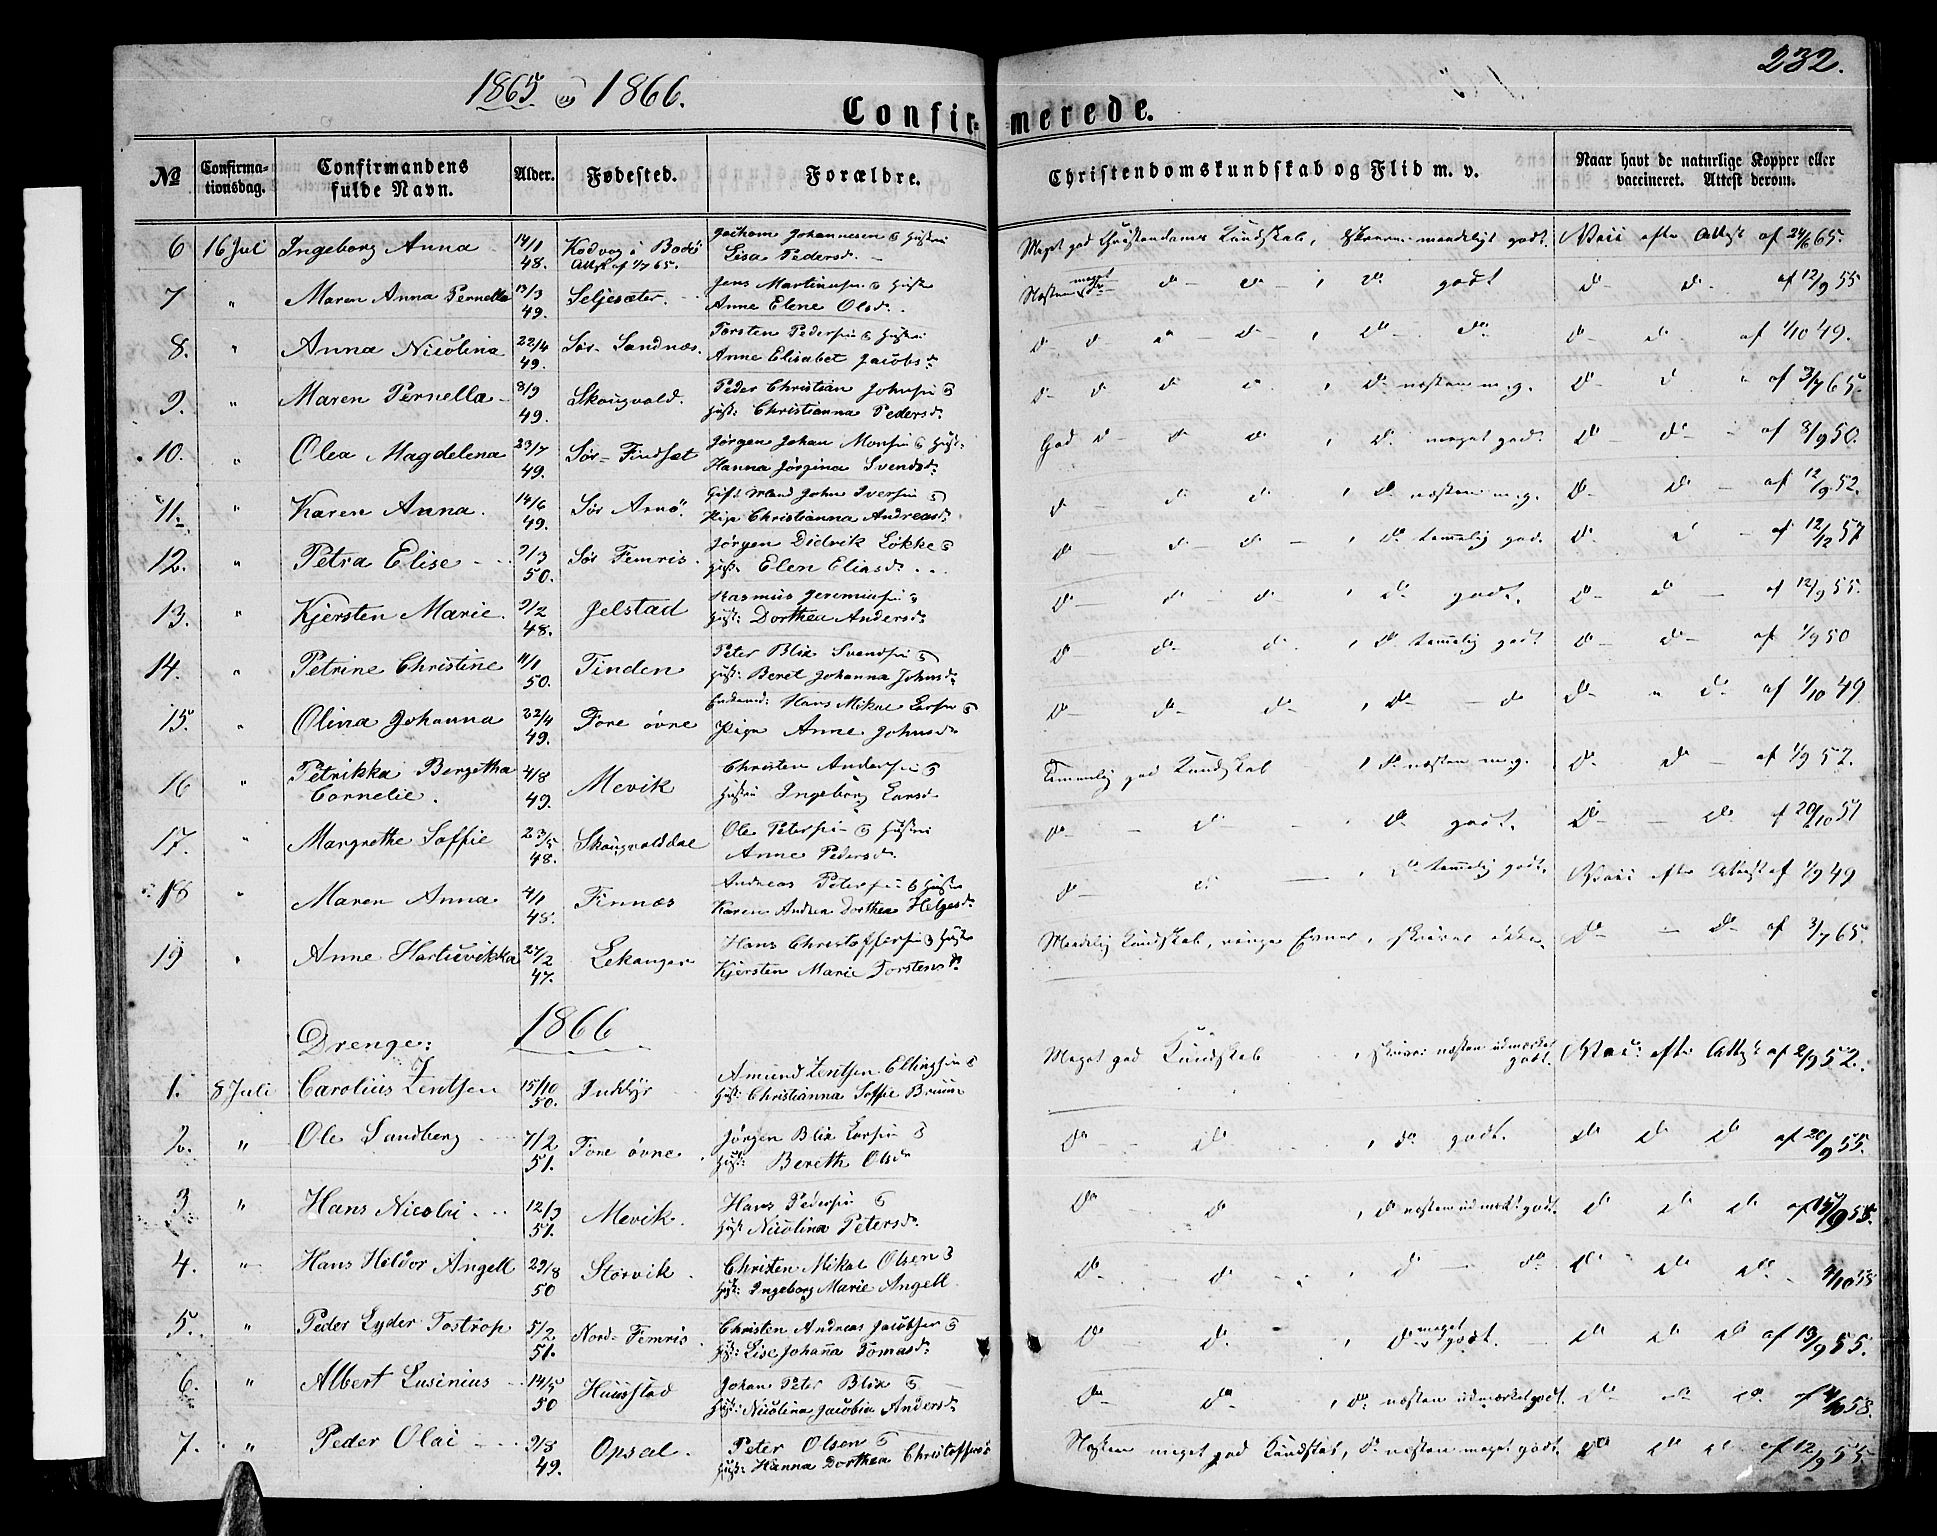 232.
1865 og 1866.
Confirmerede.
№ Confirmationsdag. Confirmandens fulde Navn. Alder. Fødested. Forældre. Christendomskundskab og Flid m. v. Naar havt de naturlige Kopper eller vaccineret. Attest derom.
6 16 Juli Ingeborg Anna 14/1 48. Kodvag i Bodö Attest af 1/7 65. Jochom Johannesen & Hustru Lisa Pedersd. Meget god Christendoms Kundskab, skrev maadeligt godt. Vacc efter Attest af 24/6 65.
7 " Maren Anna Pernella 13/3 49. Seljesæter. Jens Martinusen & Hustr Anne Elene Olsd. Næsten meget do do do , do godt do do af 12/9 55
8. " Anna Nicolina 22/4 49. Sör-Sandnæs. Torsten Pedersen & Hustru Anne Elisabet Jacobsd. do do " do , do do do do af 1/10 49.
9. " Maren Pernella 8/3 49. Skougvold. Peder Christian Johnsen & Hust: Christianna Pedersd. do do do do , do næsten m.g. do do " af 3/7 65.
10. " Olea Magdelena 23/7 49. Sör-Findset Jörgen Johan Monsen & Hust: Hanna Jörgina Svendsd. God do do do , do meget godt do do af 8/9 50.
11. " Karen Anna. 14/6 49. Sör Arnö. Gift Mand John Iversen & Pige Christianna Andreasd. do do do , do næsten m.g. do do af 12/9 52.
12. " Petra Elise 9/3 50. Sör Femris. Jörgen Didrik Lökke & Hust: Elen Eliasd. do do do , do temmelig godt do do af 12/12 57
13. " Kjersten Marie. 9/2 48. Jelstad Rasmus Jeremiasen & Hust: Dorthea Andersd. do do do , do godt. do do af 12/9 55.
14. " Petrine Christine 11/1 50. Tinden Peter Blix Svendsen & Hust: Beret Johanna Johnsd. do do do , do temmelig godt do do af 1/9 50
15. " Olina Johanna 22/4 49. Fore övre Enkemd: Hans Mikal Larsen & Pige Anne Johnsd. do do do , do do do " do af 1/10 49
16 " Petrikka Bergetha Cornelie. 4/8 49. Mevik Christen Andersen & Hustru Ingeborg Larsd. Temmelig god Kundskab , do næsten m.g. do do af 1/9 52.
17. " Margrethe Soffie 23/5 48. Skougvolddal Ole Petersen & Hustru Anne Pedersd. do do , do godt. do do af 20/10 51
18 " Maren Anna 4/1 48. Finnæs Andreas Petersen & Hustr Karen Andrea Dorthea Helgesd. do do , do temmelig godt. Vacc efter Attest af 1/9 49
19 " Anne Hartvikka 27/2 47. Lekanger Hans Christoffersen & Hustr Kjersten Marie Torstensd. Maadelig Kundskab, ringe Evner, skriver ikke. do do af 3/7 65.
Drenge: 1866
1. 8 Juli Carolius Zentsen 15/10 50. Indhyr Amund Zentsen Ellingsen & Hust: Christianna Soffie Bruun Meget god Kundskab , skriver næsten udmærket godt. Vacc: efter Attest af 2/9 52.
2. " Ole Sandberg 7/2 51. Fore övre. Jörgen Blix Larsen & Hust: Bereth Olsd. do do , do godt. do do do af 20/9 55.
3 " Hans Nicolai 12/3 51. Mevik. Hans Pedersen & Hust Nicolina Petersd. do do , do næsten udmækt godt. do do do af 15/9 55.
4. " Hans Hildor Angell 29/8 50 Storvik. Christen Mikal Olsen & Hust: Ingeborg Marie Angell. do do , do do do do do 4/10 58
5. " Peder Lyder Tostrop 5/2 51. Nord-Femris Christen Andreas Jacobsen & Hust: Lise Johanna Tomasd. do do , do meget godt. do do do af 13/9 55.
6. " Albert Lusinius 14/5 50 Huusstad Johan Peter Blix & Hust: Nicolina Jacobia Andersd. do do , do næsten udmærket godt. do do do af 4/10 58.
7. " Peder Olai 9/8 49. Opsal. Peter Olsen & Hust: Hanna Dorthea Christoffersd Næsten meget god Kundskab, do næsten meget godt. do do do af 12/9 55.